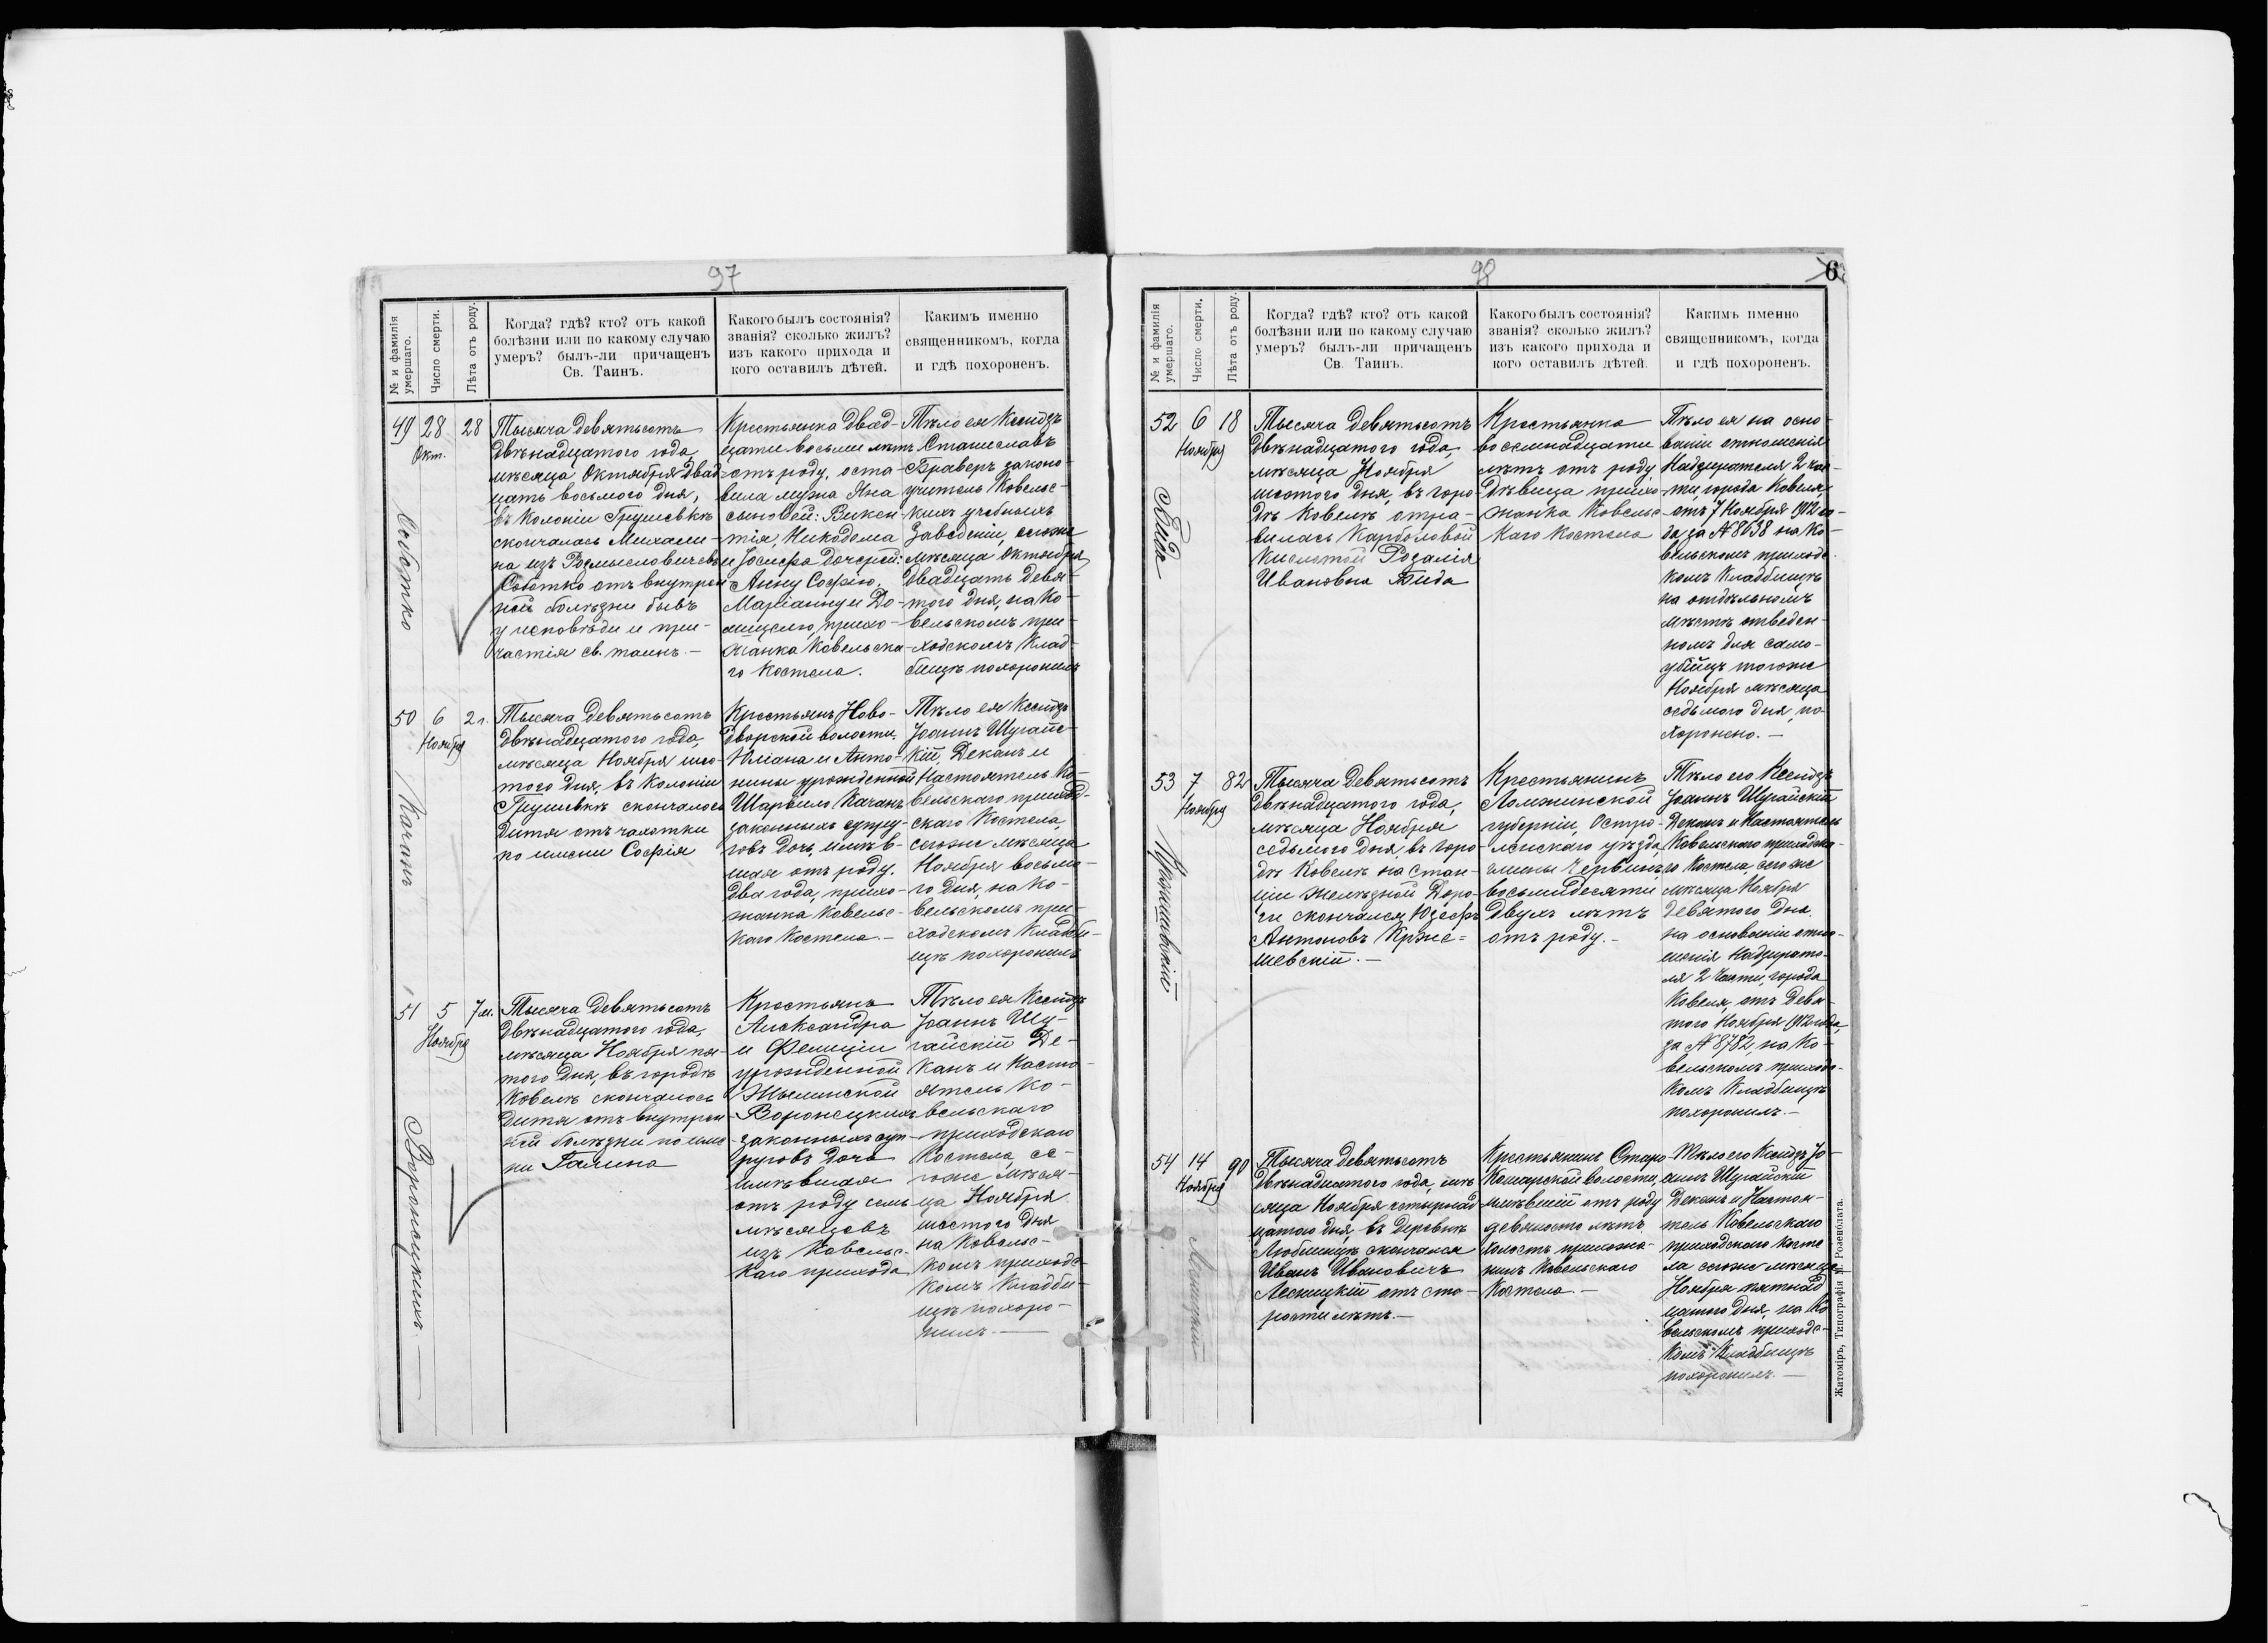 97
№ и фамилія умершаго.
Число смерти.
Лѣта отъ роду.
Когда? гдѣ? кто? отъ какой
болѣзни или по какому случаю
умеръ? былъ-ли причащенъ
Св. Таинъ.
Какого былъ состоянія?
званія? сколько жилъ?
изъ какого прихода и
кого оставилъ дѣтей.
Какимъ именно
священникомъ, когда
и гдѣ похороненъ.
49
28
Окт.
28
Тысяча девятьсотъ
двѣнадцатого года,
мѣсяца Октября двад-
цать восьмого дня,
въ Колоніи Грушевкѣ
скончалась Михали-
на изъ
отъ внутрен
ней болѣзни бывъ
у исповѣди и при-
частія св. таинъ.—
Крестьянка двад-
цати восьми лѣтъ
отъ роду, оста-
вила мужа Яна
сыновей: Викен-
тія, Никодема
и Іосифа дочерей:
Анну Софію,
Маріанну и До-
мицелю, прихо-
жанка Ковельска-
го Костела.
Тѣло ея Ксендзъ
Станиславъ
Браверъ законо-
учитель Ковельс-
кихъ учебныхъ
Заведеній, сегоже
мѣсяца Октября
двадцать девя-
того дня, на Ко-
вельскомъ при-
ходскомъ Клад-
бищѣ похоронилъ
50
6
Ноября
2 г.
Качанъ
Тысяча девятьсотъ
двѣнадцатого года,
мѣсяца Ноября шес-
того дня, въ Колоніи
Грушевкѣ скончалось
дитя отъ чахотки
по имени Софія
Крестьянъ Ново-
дворской волости,
Юліана и Анто-
нины урожденной
Шарвило Качанъ
законныхъ супру-
говъ дочь, имѣв-
шая отъ роду.
два года, прихо-
жанка Ковельс-
каго Костела.—
Тѣло ея Ксендзъ
Іоаннъ Шугайс-
кій, Деканъ и
Настоятель Ко-
вельскаго приход-
скаго Костела,
сегоже мѣсяца
Ноября восьмо-
го дня, на Ко-
вельскомъ при-
ходскомъ Кладби-
щѣ похоронилъ
51
5
Ноября
7 м.
Воронецкихъ.—
Тысяча девятьсотъ
двѣнадцатого года,
мѣсяца Ноября пя-
того дня, въ городѣ
Ковелѣ скончалось
дитя отъ внутрен
ней болѣзни по име
ни Галина
Крестьянъ
Александра
и Фелиціи
урожденной
Воронецкихъ
законныхъ суп-
руговъ дочь
имѣвшая
отъ роду семь
мѣсяцевъ
изъ Ковельс-
каго прихода
Тѣло ея Ксендзъ
Іоаннъ Шу-
гайскій Де-
канъ и Насто-
ятель Ко-
вельскаго
приходскаго
Костела, се-
гоже мѣся-
ца Ноября
шестого дня
на Ковельс-
комъ приходс-
комъ Кладби-
щѣ похоро-
нилъ.—
98
6
№ и фамилія умершаго.
Число смерти.
Лѣта отъ роду.
Когда? гдѣ? кто? отъ какой
болѣзни или по какому случаю
умеръ? былъ-ли причащенъ
Св. Таинъ.
Какого былъ состоянія?
званія? сколько жилъ?
изъ какого прихода и
кого оставилъ дѣтей.
Какимъ именно
священникомъ, когда
и гдѣ похороненъ.
52
6
Ноября
18
Бида
Тысяча девятьсотъ
двѣнадцатого года,
мѣсяца Ноября
шестого дня, въ горо-
дѣ Ковелѣ отра-
вилась Карболовой
Кислотой Розалія
Ивановна Бида
Крестьянка
восемнадцати
лѣтъ отъ роду,
дѣвица прихо-
жанка Ковельс-
каго Костела
Тѣло ея на осно-
ваніи отношенія
Надзирателя 2 час-
ти, города Ковеля,
отъ 7 Ноября 1912 го-
да за № 8638 на Ко-
вельскомъ приходс-
комъ Кладбищѣ
на отдѣльномъ
мѣстѣ отведен-
номъ для само-
убійцъ тогоже
Ноября мѣсяца
седьмого дня, по-
хоронено.—
53
7
Ноября
82
Тысяча девятьсотъ
двѣнадцатого года,
мѣсяца Ноября
седьмого дня, въ горо-
дѣ Ковелѣ на стан-
ціи желѣзной Доро-
ги скончался Юзефъ
Антоновъ Крже-
шевскій.—
Крестьянинъ
Ломжинской
губерніи, Остро-
ленскаго уѣзда,
гмины Червинъ,
восьмидесяти
двухъ лѣтъ
отъ роду.—
Тѣло его Ксендзъ
Іоаннъ Шугайскій
Деканъ и Настоятель
Ковельскаго приходска-
го Костела, сегоже
мѣсяца Ноября
девятого дня.
на основаніи отно-
шенія Надзирате-
ля 2 части, города
Ковеля, отъ девя-
того Ноября 1912 года,
за № 8782, на Ко-
вельскомъ приходс-
комъ Кладбищѣ
похоронилъ.—
54
14
Ноября
90
Лесницкій
Тысяча девятьсотъ
двѣнадцатого года, мѣ
сяца Ноября четырнад
цатого дня, въ деревнѣ
Люблинцѣ скончался
Иванъ Ивановичъ
Лесницкій отъ ста-
рости лѣтъ.—
Крестьянинъ Старо-
Кошарской волости,
имѣвшій отъ роду
девяносто лѣтъ
холостъ прихожа-
нинъ Ковельскаго
Костела.—
Тѣло его Ксендзъ Іо-
аннъ Шугайскій
Деканъ и Настоя-
тель Ковельскаго
приходскаго Косте
ла сегоже мѣсяца
Ноября пятнад
цатого дня, на Ко
вельскомъ приходс-
комъ Кладбищѣ
похоронилъ.—
Житоміръ, Типографія М. Розенблата.